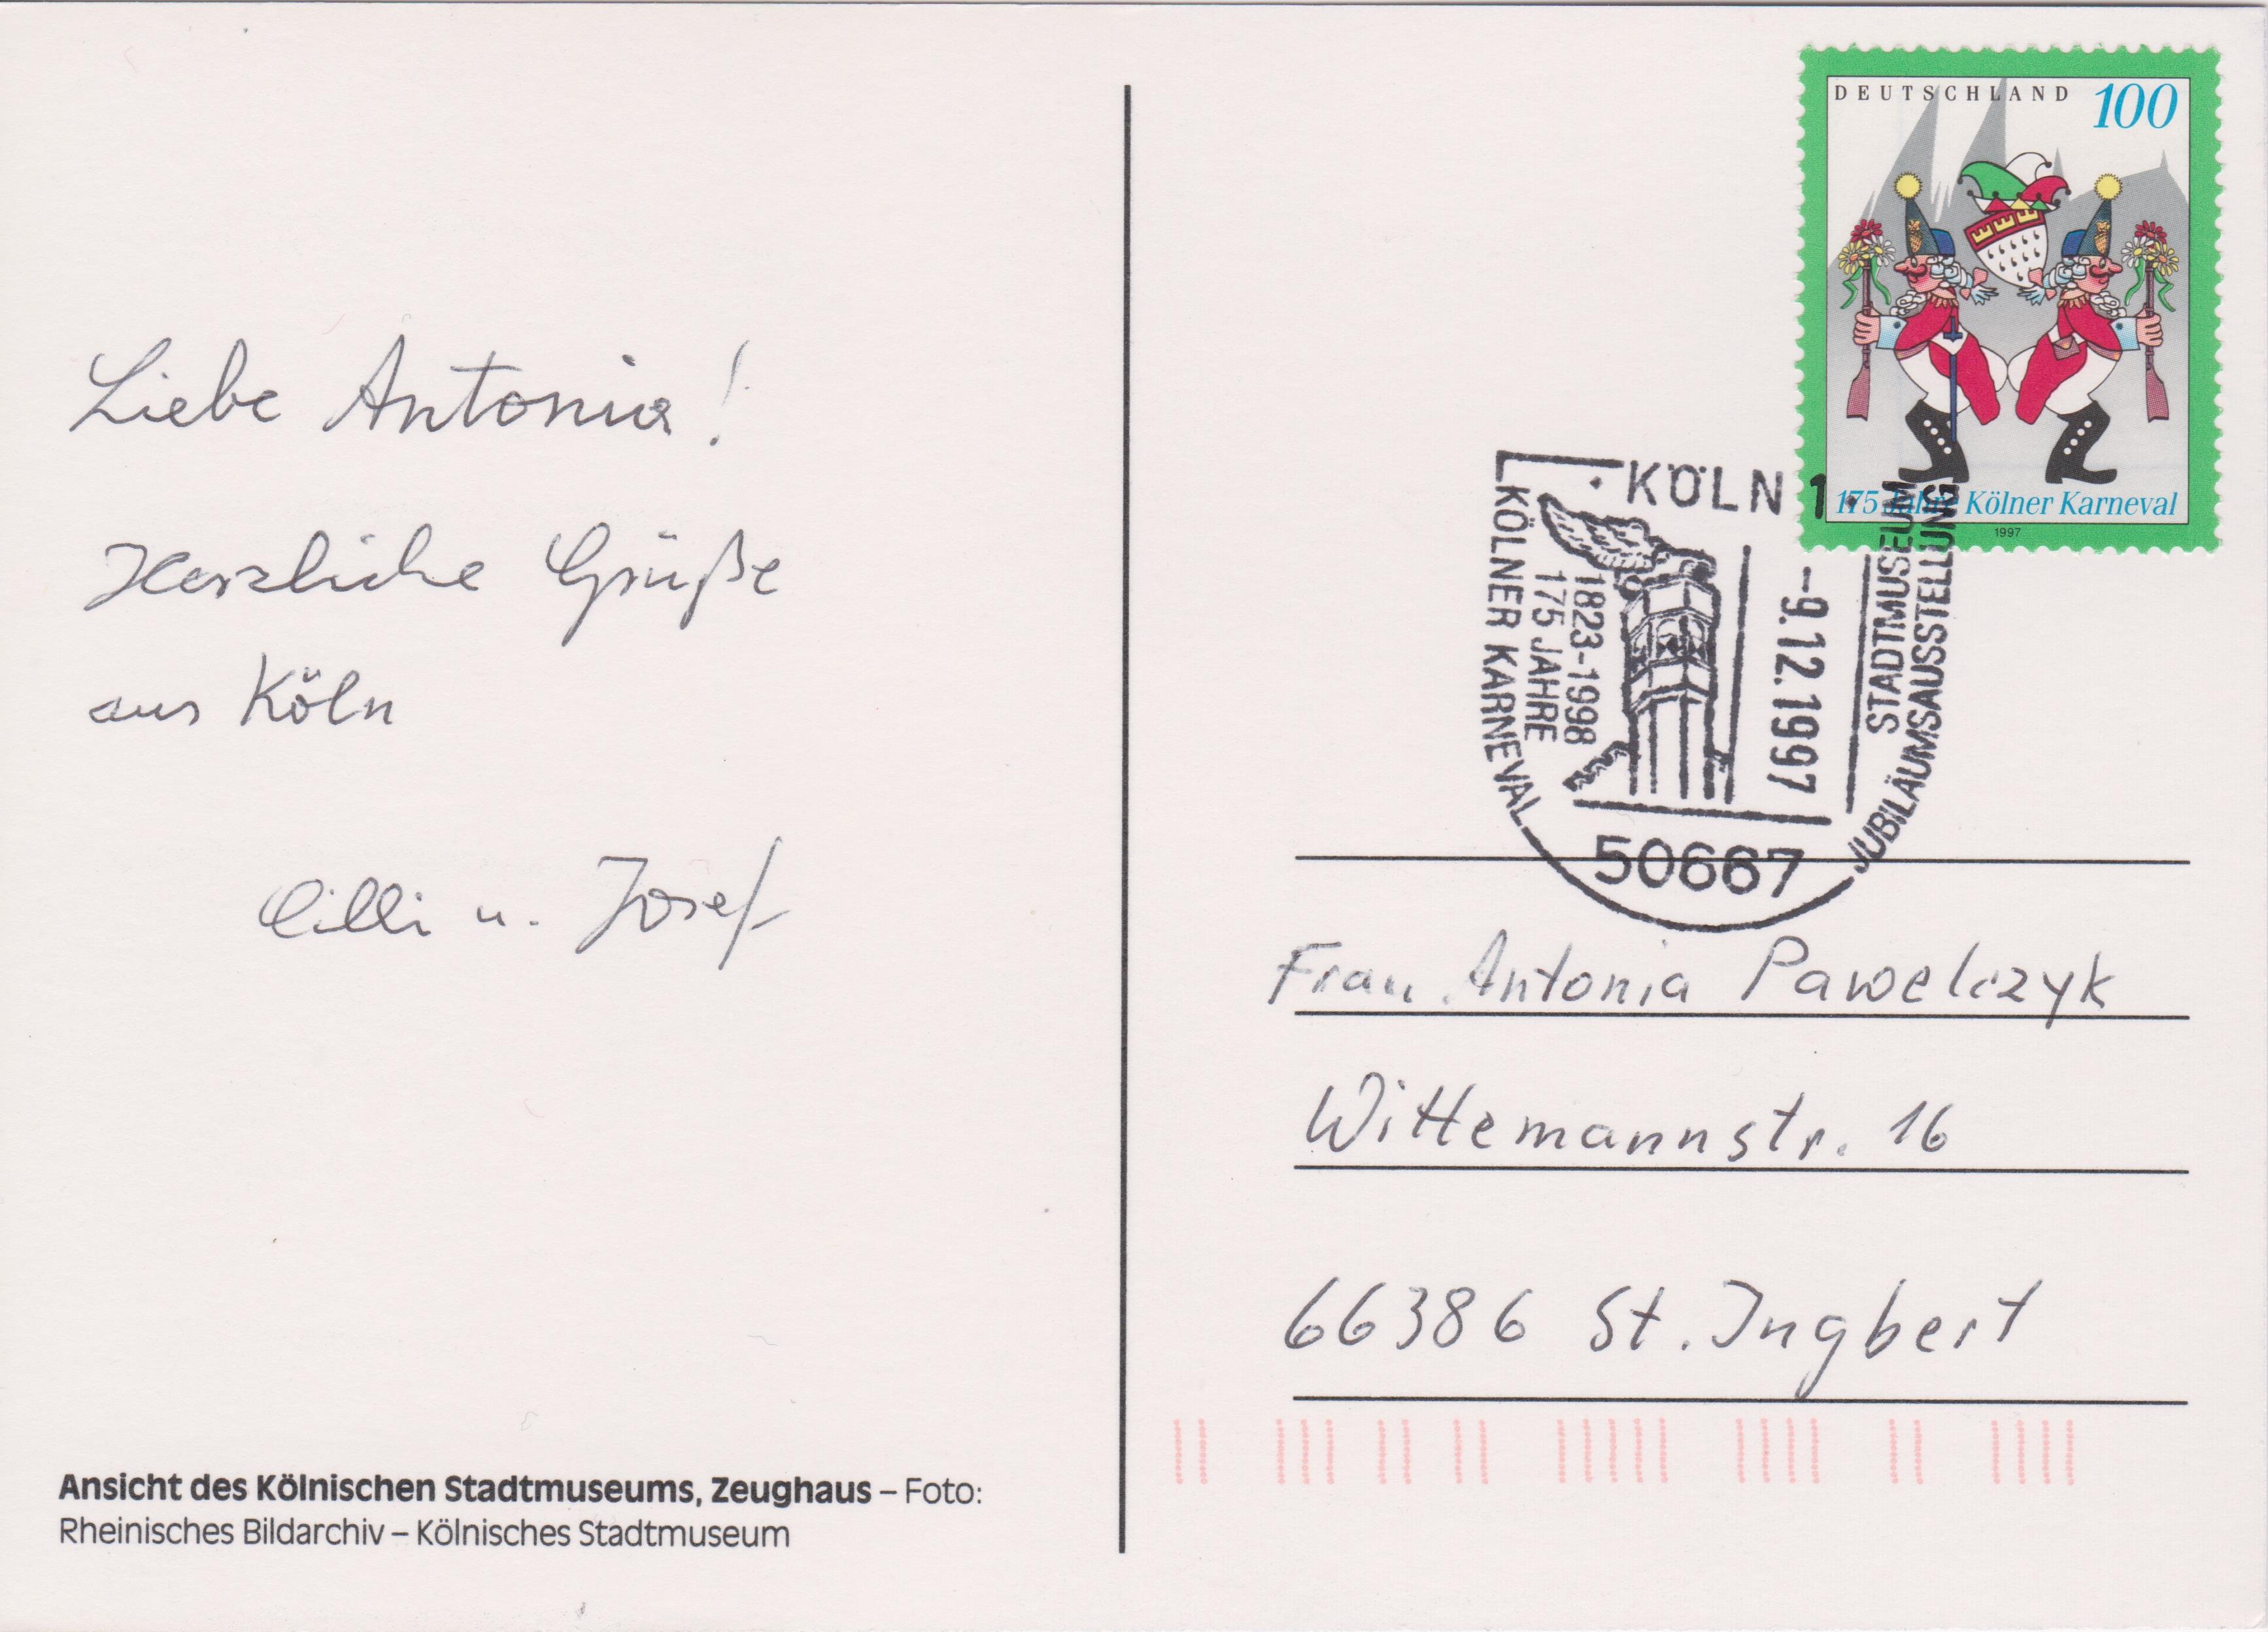 Liebe Antonia!
Herzliche Grüße
aus Köln
Cilli u. Josef
Ansicht des Kölnischen Stadtmuseums, Zeughaus – Foto:
Rheinisches Bildarchiv – Kölnisches Stadtmuseum
DEUTSCHLAND 100
175 Jahre Kölner Karneval
1997
KÖLN 1
KÖLNER KARNEVAL
175 JAHRE
1823-1998
-9.12.1997
STADTMUSEUM
JUBILÄUMSAUSSTELLUNG
50667
Frau Antonia Pawelczyk
Wittemannstr. 16
66386 St. Ingbert